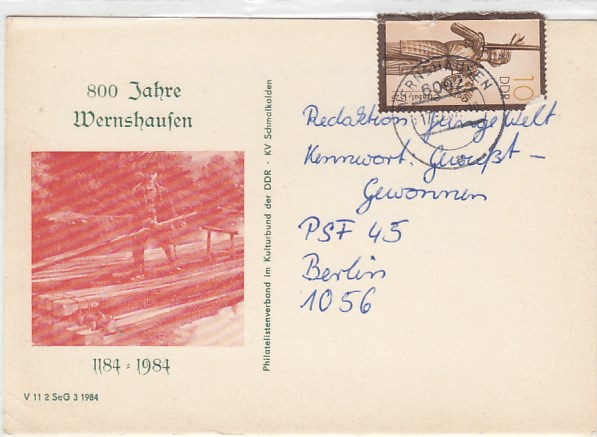 800 Jahre
Wernshausen
1184 - 1984
V 11 2 SeG 3 1984
Philatelistenverband im Kulturbund der DDR · KV Schmalkalden
10
DDR
WERNSHAUSEN
6092
Redaktion Junge Welt
Kennwort: Gewußt –
Gewonnen
PSF 45
Berlin
1056